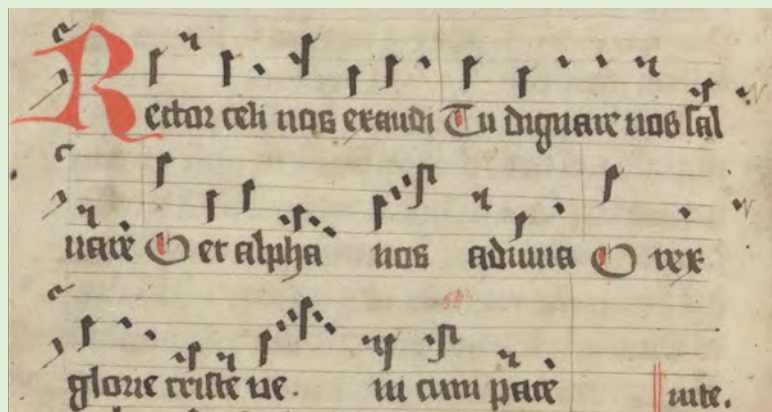 Rector celi nos exaudi Tu dignare nos sal
uare O et alpha nos adiuua O rex
glorie criste ue. in cum pace iute.